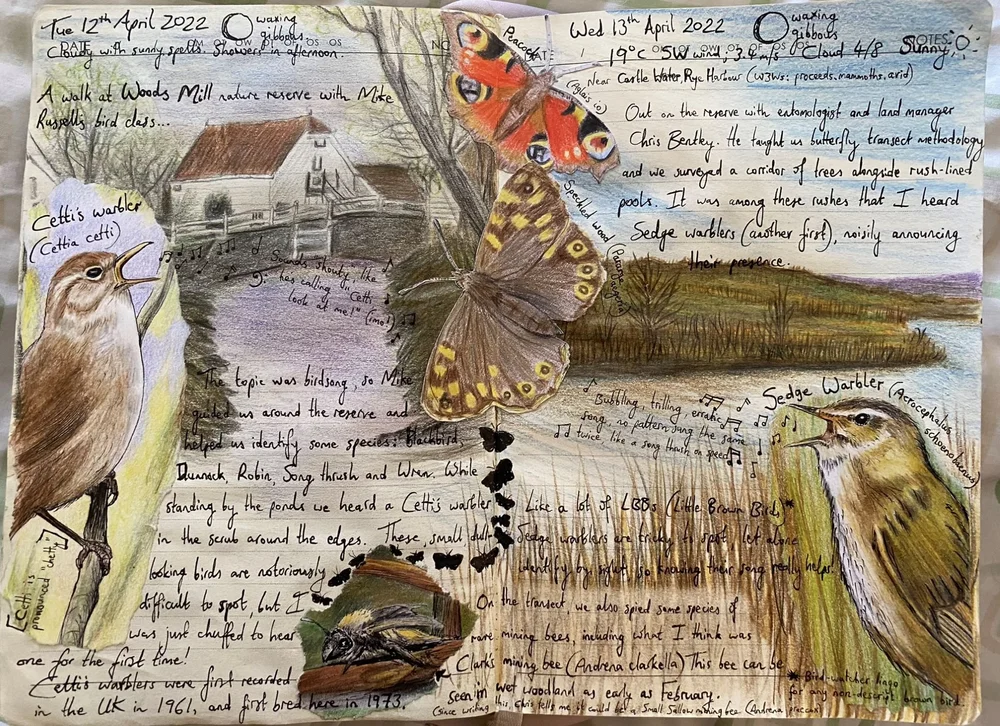 Tue 12th April 2022
waxing
gibbous
Cloudy with sunny spells. Showers in afternoon.
A walk at Woods Mill nature reserve with Mike
Russell's bird class...
Cetti's warbler
(Cettia cetti)
Sounds shouty, like
has calling "Cetti
look at me!" (imo!)
The topic was birdsong, so Mike
guided us around the reserve and
helped us identify some species: Blackbird,
Dunnock, Robin, Song thrush and Wren. While
standing by the ponds we heard a Cetti's warbler
in the scrub around the edges. These, small dull-
looking birds are notoriously
difficult to spot, but I
was just chuffed to hear
one for the first time!
Cetti's warblers were first recorded
in the UK in 1961, and first bred here in 1973.
[Cetti is
pronounced "chetty"]
Peacock
(Aglais io)
Speckled wood
(Pararge aegeria)
Wed 13th April 2022
waxing
gibbous
NOTES
Sunny
19°C SW wind, 3.4 m/s Cloud 4/8
Near Castle Water, Rye Harbour (W3Ws: proceeds.mammoths.avid)
Out on the reserve with entomologist and land manager
Chris Bentley. He taught us butterfly transect methodology
and we surveyed a corridor of trees alongside rush-lined
pools. It was among these rushes that I heard
Sedge warblers (another first), noisily announcing
their presence.
Bubbling, trilling, erratic
song, no pattern sung the same
twice, like a song thrush on speed
Sedge Warbler (Acrocephalus
schoenobaenus)
Like a lot of LBBs (Little Brown Birds)*
Sedge warblers are tricky to spot, let alone
identify by sight, so knowing their song really helps.
On the transect, we also spied some species of
rare mining bees, including what I think was
Clark's mining bee (Andrena clarkella) This bee can be
seen in wet woodland as early as February.
(Since writing this, Chris tells me it could be a Small Sallow mining bee (Andrena praecox)
* Bird-watcher lingo
for any non-descript brown bird.